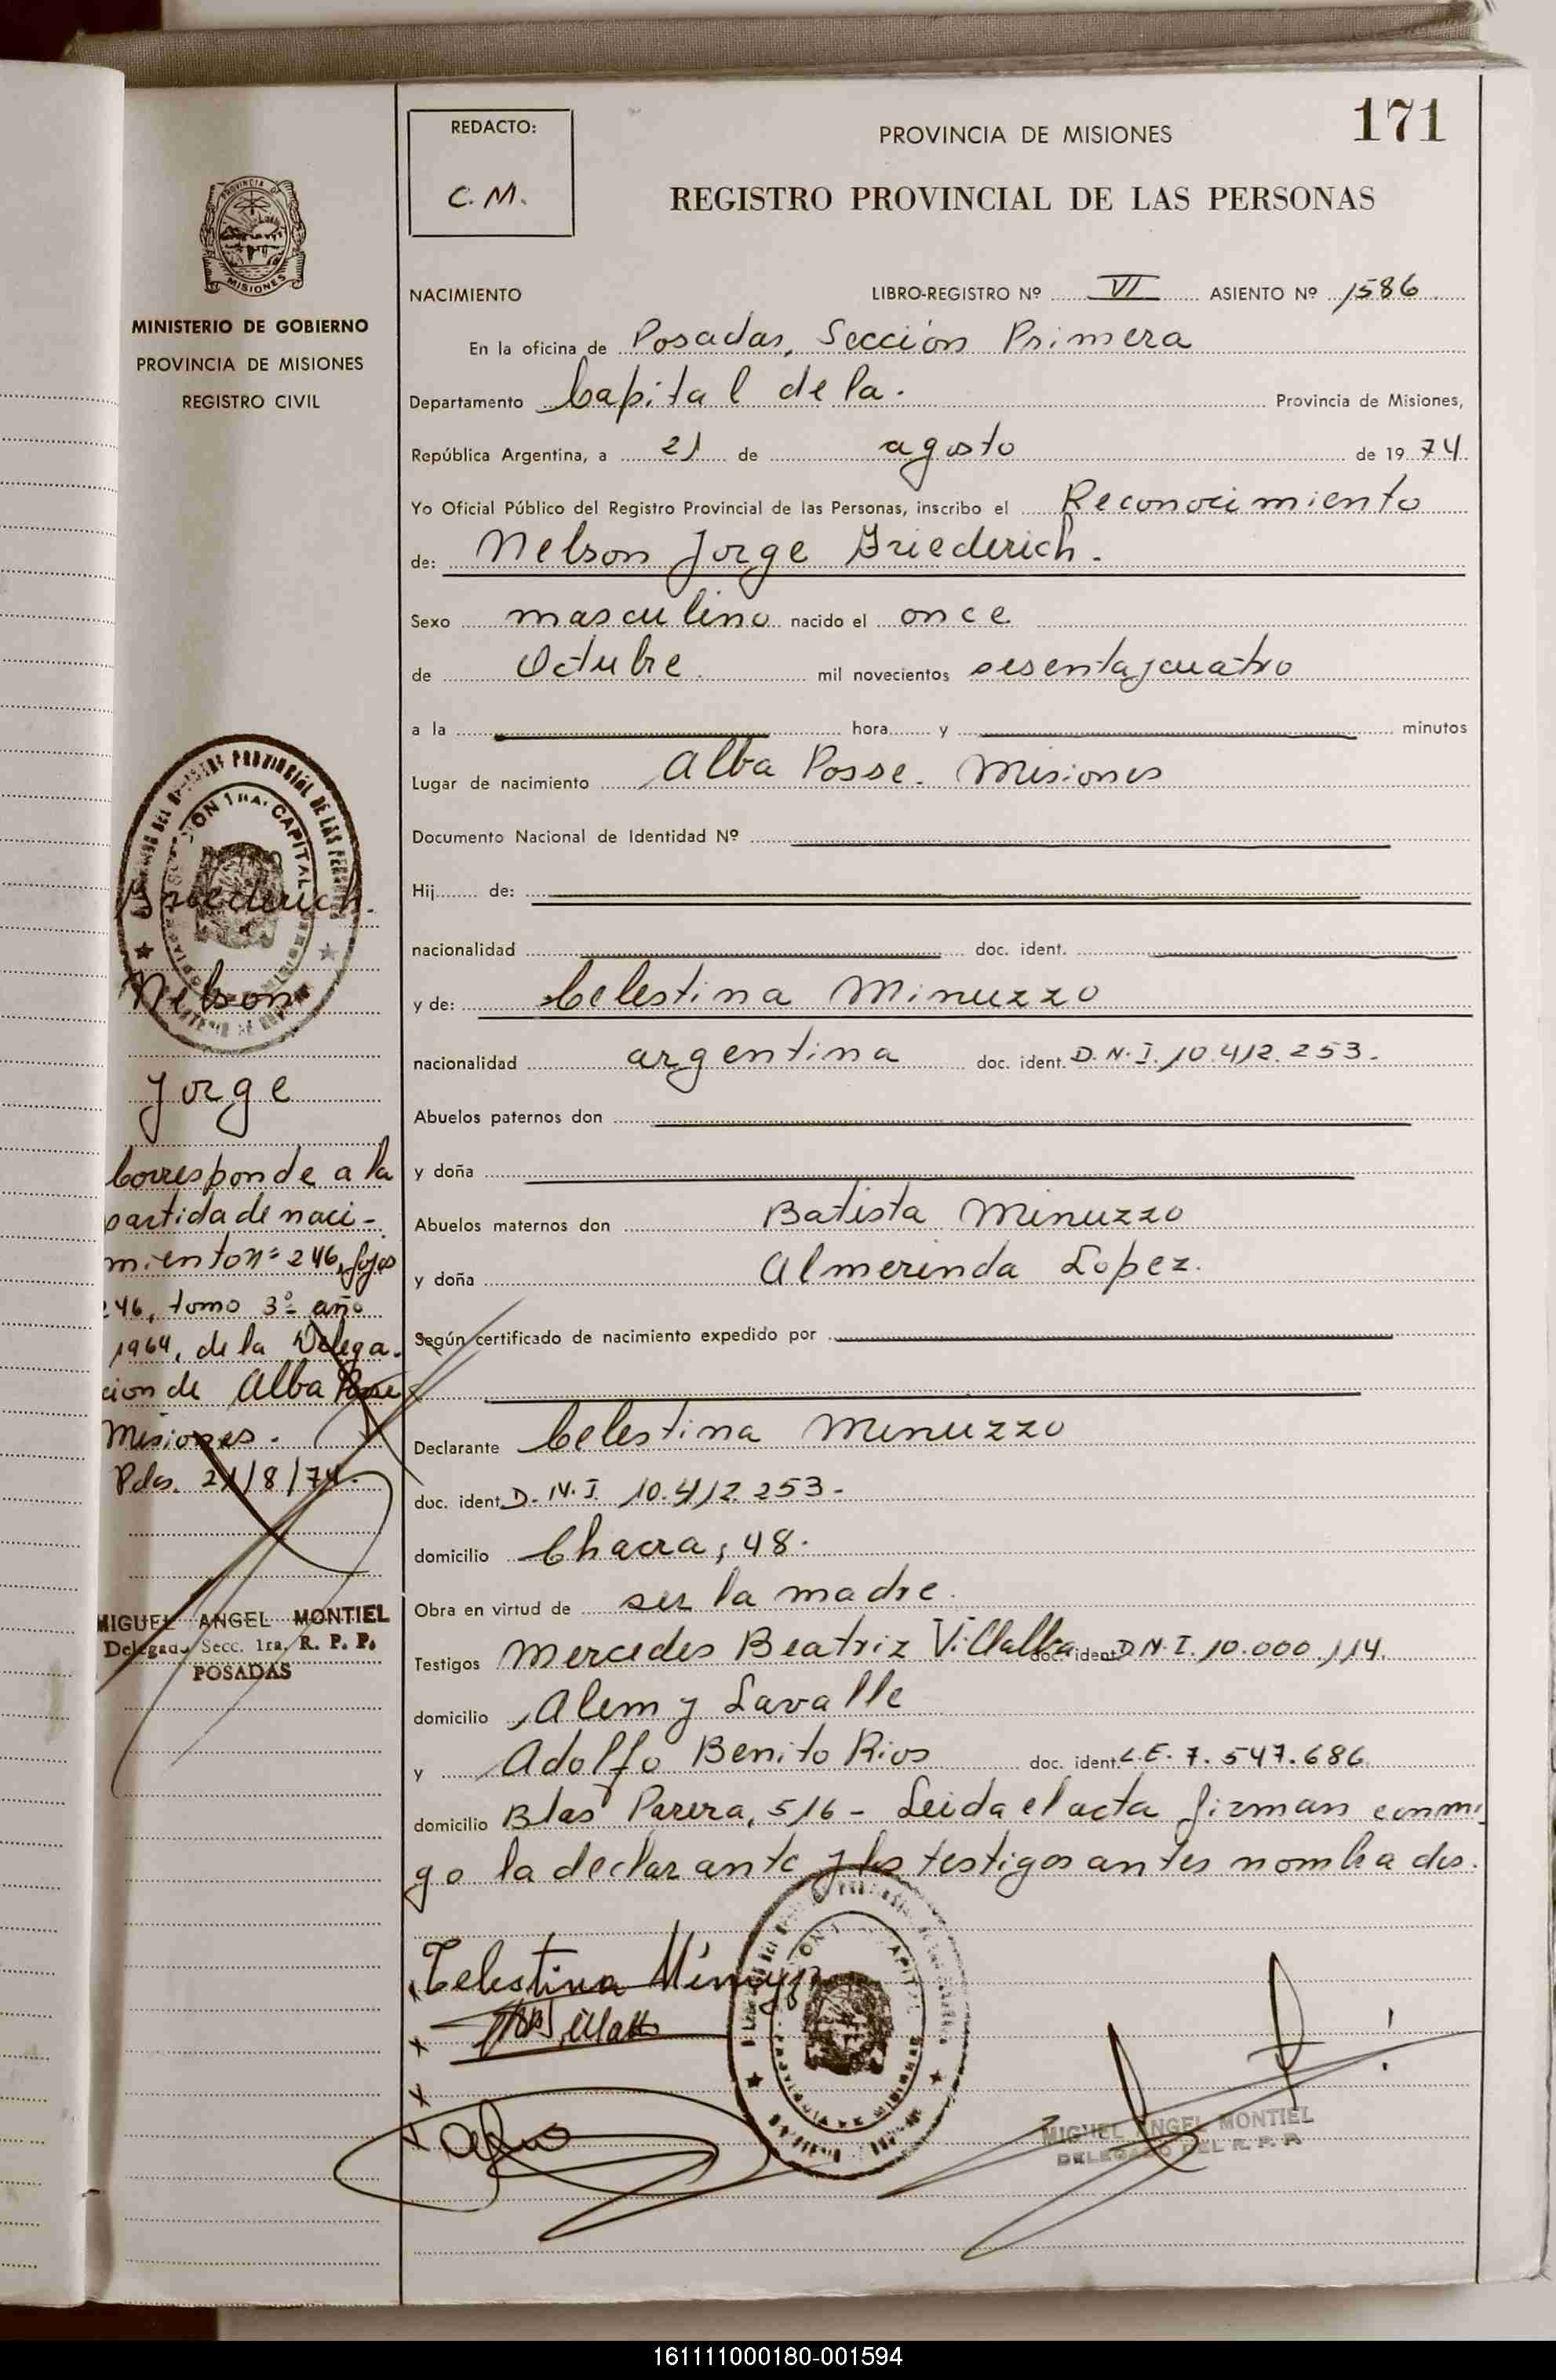 171
REDACTO:
C. M.
PROVINCIA DE MISIONES
REGISTRO PROVINCIAL DE LAS PERSONAS
PROVINCIA D
MISIONES
MINISTERIO DE GOBIERNO
PROVINCIA DE MISIONES
REGISTRO CIVIL
NACIMIENTO LIBRO-REGISTRO Nº VI ASIENTO Nº 1586
En la oficina de Posadas, Sección Primera
Departamento Capital de la. Provincia de Misiones,
República Argentina, a 21 de agosto de 1974.
Yo Oficial Público del Registro Provincial de las Personas, inscribo el Reconocimiento
de: Nelson Jorge Friederich.
Sexo masculino nacido el once
de Octubre. mil novecientos sesenta y cuatro
a la hora y minutos
Lugar de nacimiento Alba Posse. Misiones
Documento Nacional de Identidad Nº
Hij de:
nacionalidad doc. ident.
y de: Celestina Minuzzo
nacionalidad argentina doc. ident. D.N.I. 10.412.253.
Abuelos paternos don
y doña
Abuelos maternos don Batista Minuzzo
y doña Almerinda Lopez.
Según certificado de nacimiento expedido por
Declarante Celestina Minuzzo
doc. ident. D.N.I. 10.412.253.-
domicilio Chacra, 48.
Obra en virtud de ser la madre.
Testigos Mercedes Beatriz Villalba doc. ident. D.N.I. 10.000.114.
domicilio Alem y Lavalle
y Adolfo Benito Rios doc. ident. L.E. 7.547.686.
domicilio Blas Parera, 516 - Leida el acta firman conmi
go la declarante y los testigos antes nombrados.
Celestina Minuzzo
MIGUEL ANGEL MONTIEL
DELEGADO DEL R. P. P.
Friederich.
Nelson
Jorge
Corresponde a la
partida de naci-
miento nº 246, fojas
246, tomo 3º año
1964, de la Delega-
cion de Alba Posse
Misiones.
Pdas. 21/8/74.
MIGUEL ANGEL MONTIEL
Delegado Secc. 1ra. R. P. P.
POSADAS
161111000180-001594